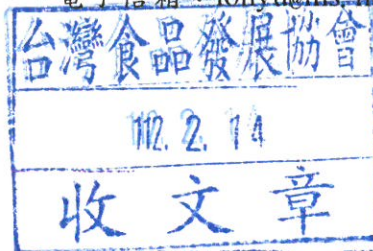 電子信箱:
台灣食品發展協會
112. 2. 14
收文章